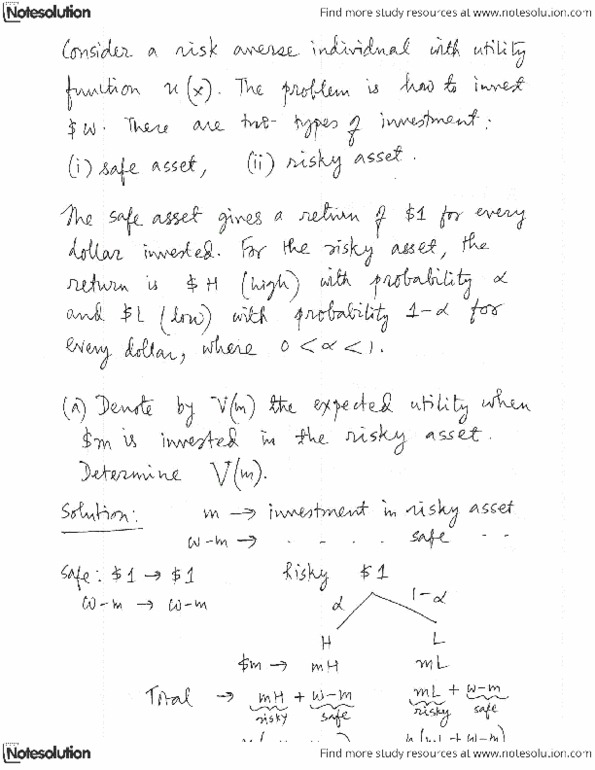 Notesolution
Find more study resources at www.notesolution.com
Consider a risk averse individual with utility
function u(x). The problem is how to invest
$w. There are two types of investment:
(i) safe asset, (ii) risky asset.
The safe asset gives a return of $1 for every
dollar invested. For the risky asset, the
return is $H (high) with probability α
and $L (low) with probability 1-α for
every dollar, where 0 < α < 1.
(a) Denote by V(m) the expected utility when
$m is invested in the risky asset.
Determine V(m).
Solution: m → investment in risky asset
w-m → . . . . safe . .
Safe: $1 → $1 Risky $1
w-m → w-m α 1-α
H L
$m → mH mL
Total → mH + w-m mL + w-m
risky safe risky safe
Notesolution
Find more study resources at www.notesolution.com